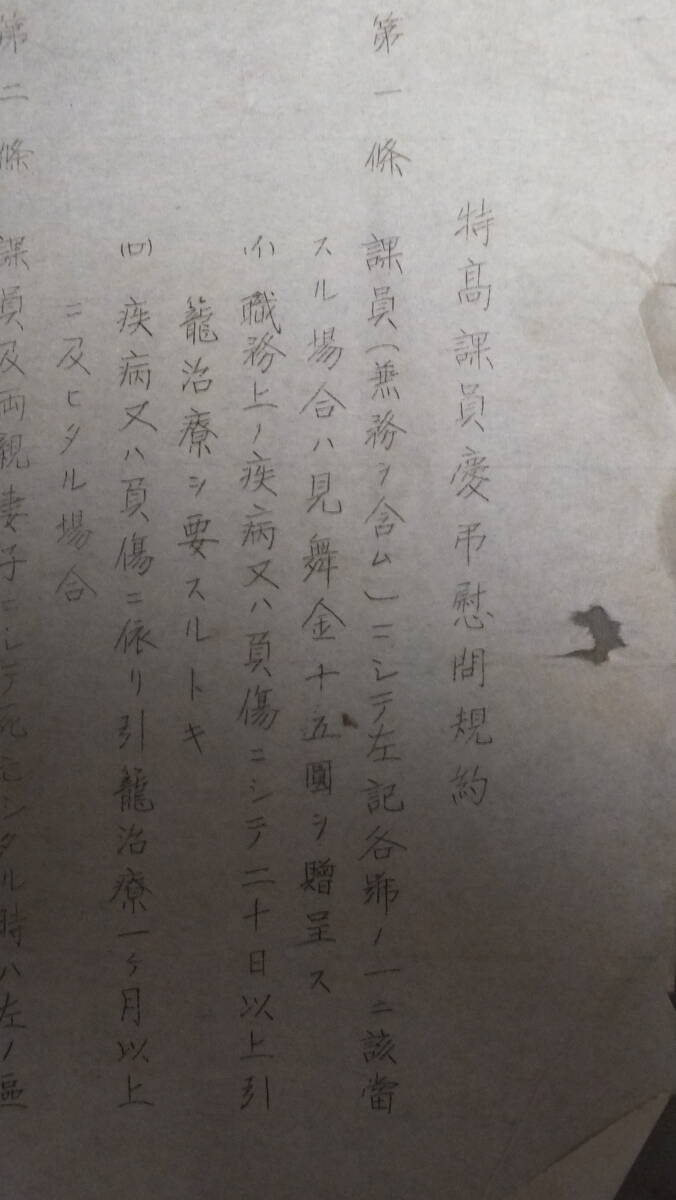 特高課員慶弔慰問規約
第一條 課員(兼務ヲ含ム)ニシテ左記各號ノ一ニ該當
スル場合ハ見舞金十五圓ヲ贈呈ス
(イ)職務上ノ疾病又ハ負傷ニシテ二十日以上引
籠治療ヲ要スルトキ
(ロ)疾病又ハ負傷ニ依リ引籠治療一ヶ月以上
ニ及ヒタル場合
第二條 課員及両親妻子ニシテ死亡シタル時ハ左ノ區